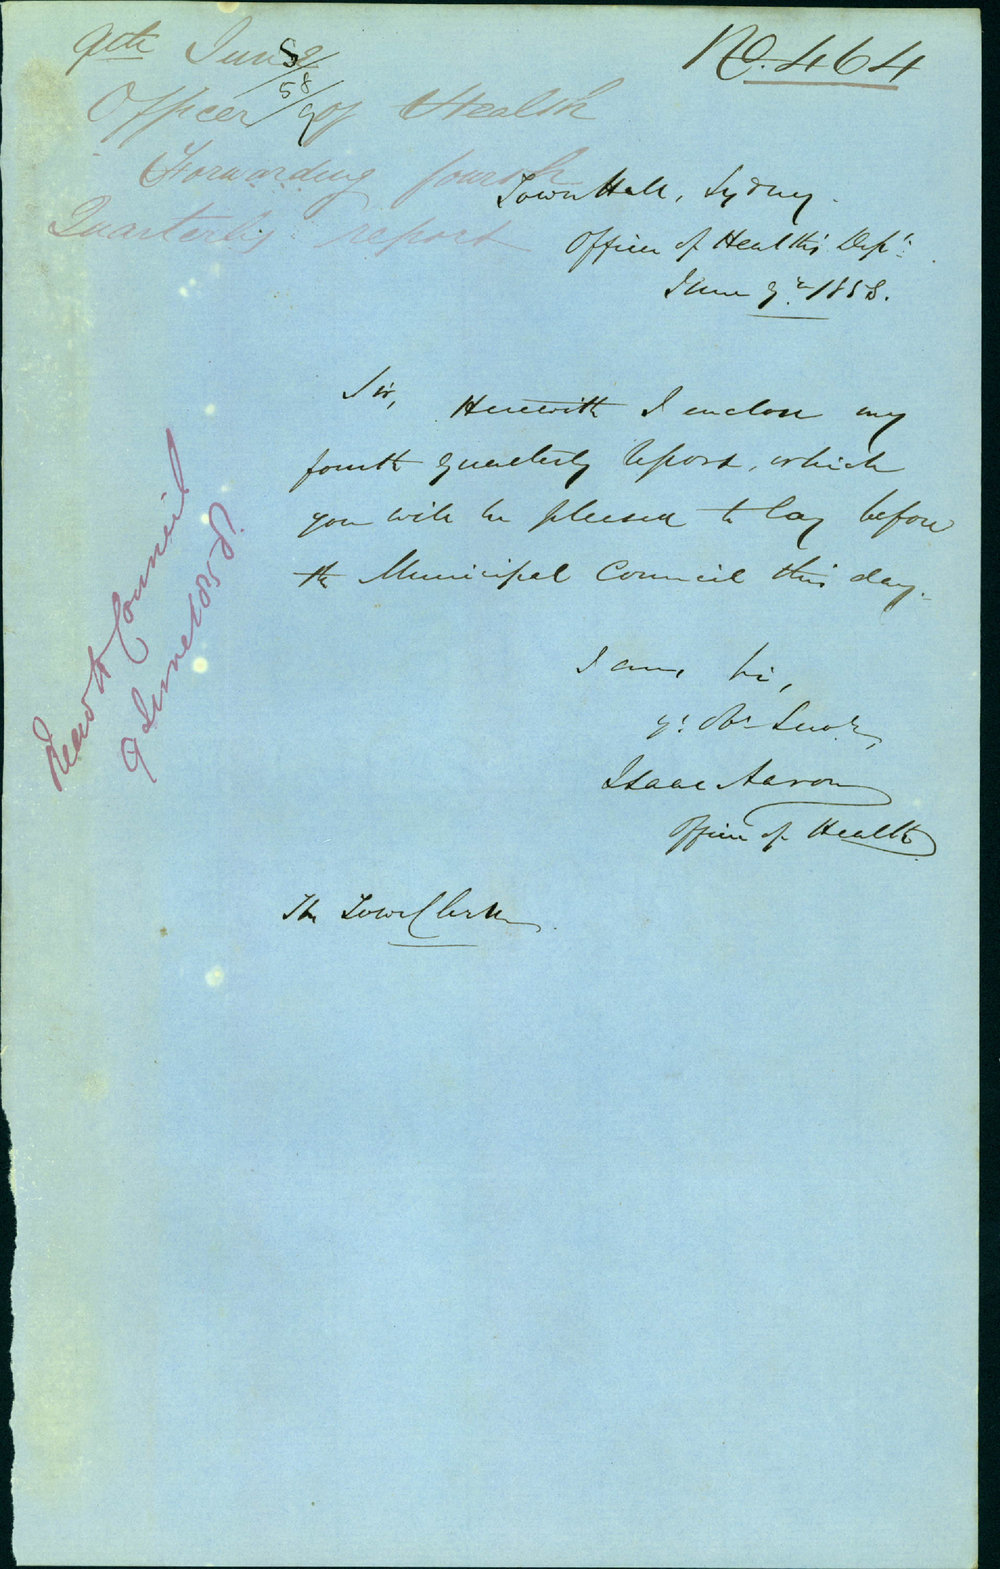 9th June
Officer of Health
Forwarding fourth
Quarterly report
No. 464
Town Hall, Sydney.
Officer of Health's Dept.
June 9th 1858.
Sir,
Herewith I enclose my
fourth quarterly report, which
you will be pleased to lay before
the Municipal Council this day.
I am, Sir,
yr. Obt Servt,
Isaac Aaron
Officer of Health
The Town Clerk
Read to Council
9 June 1858.